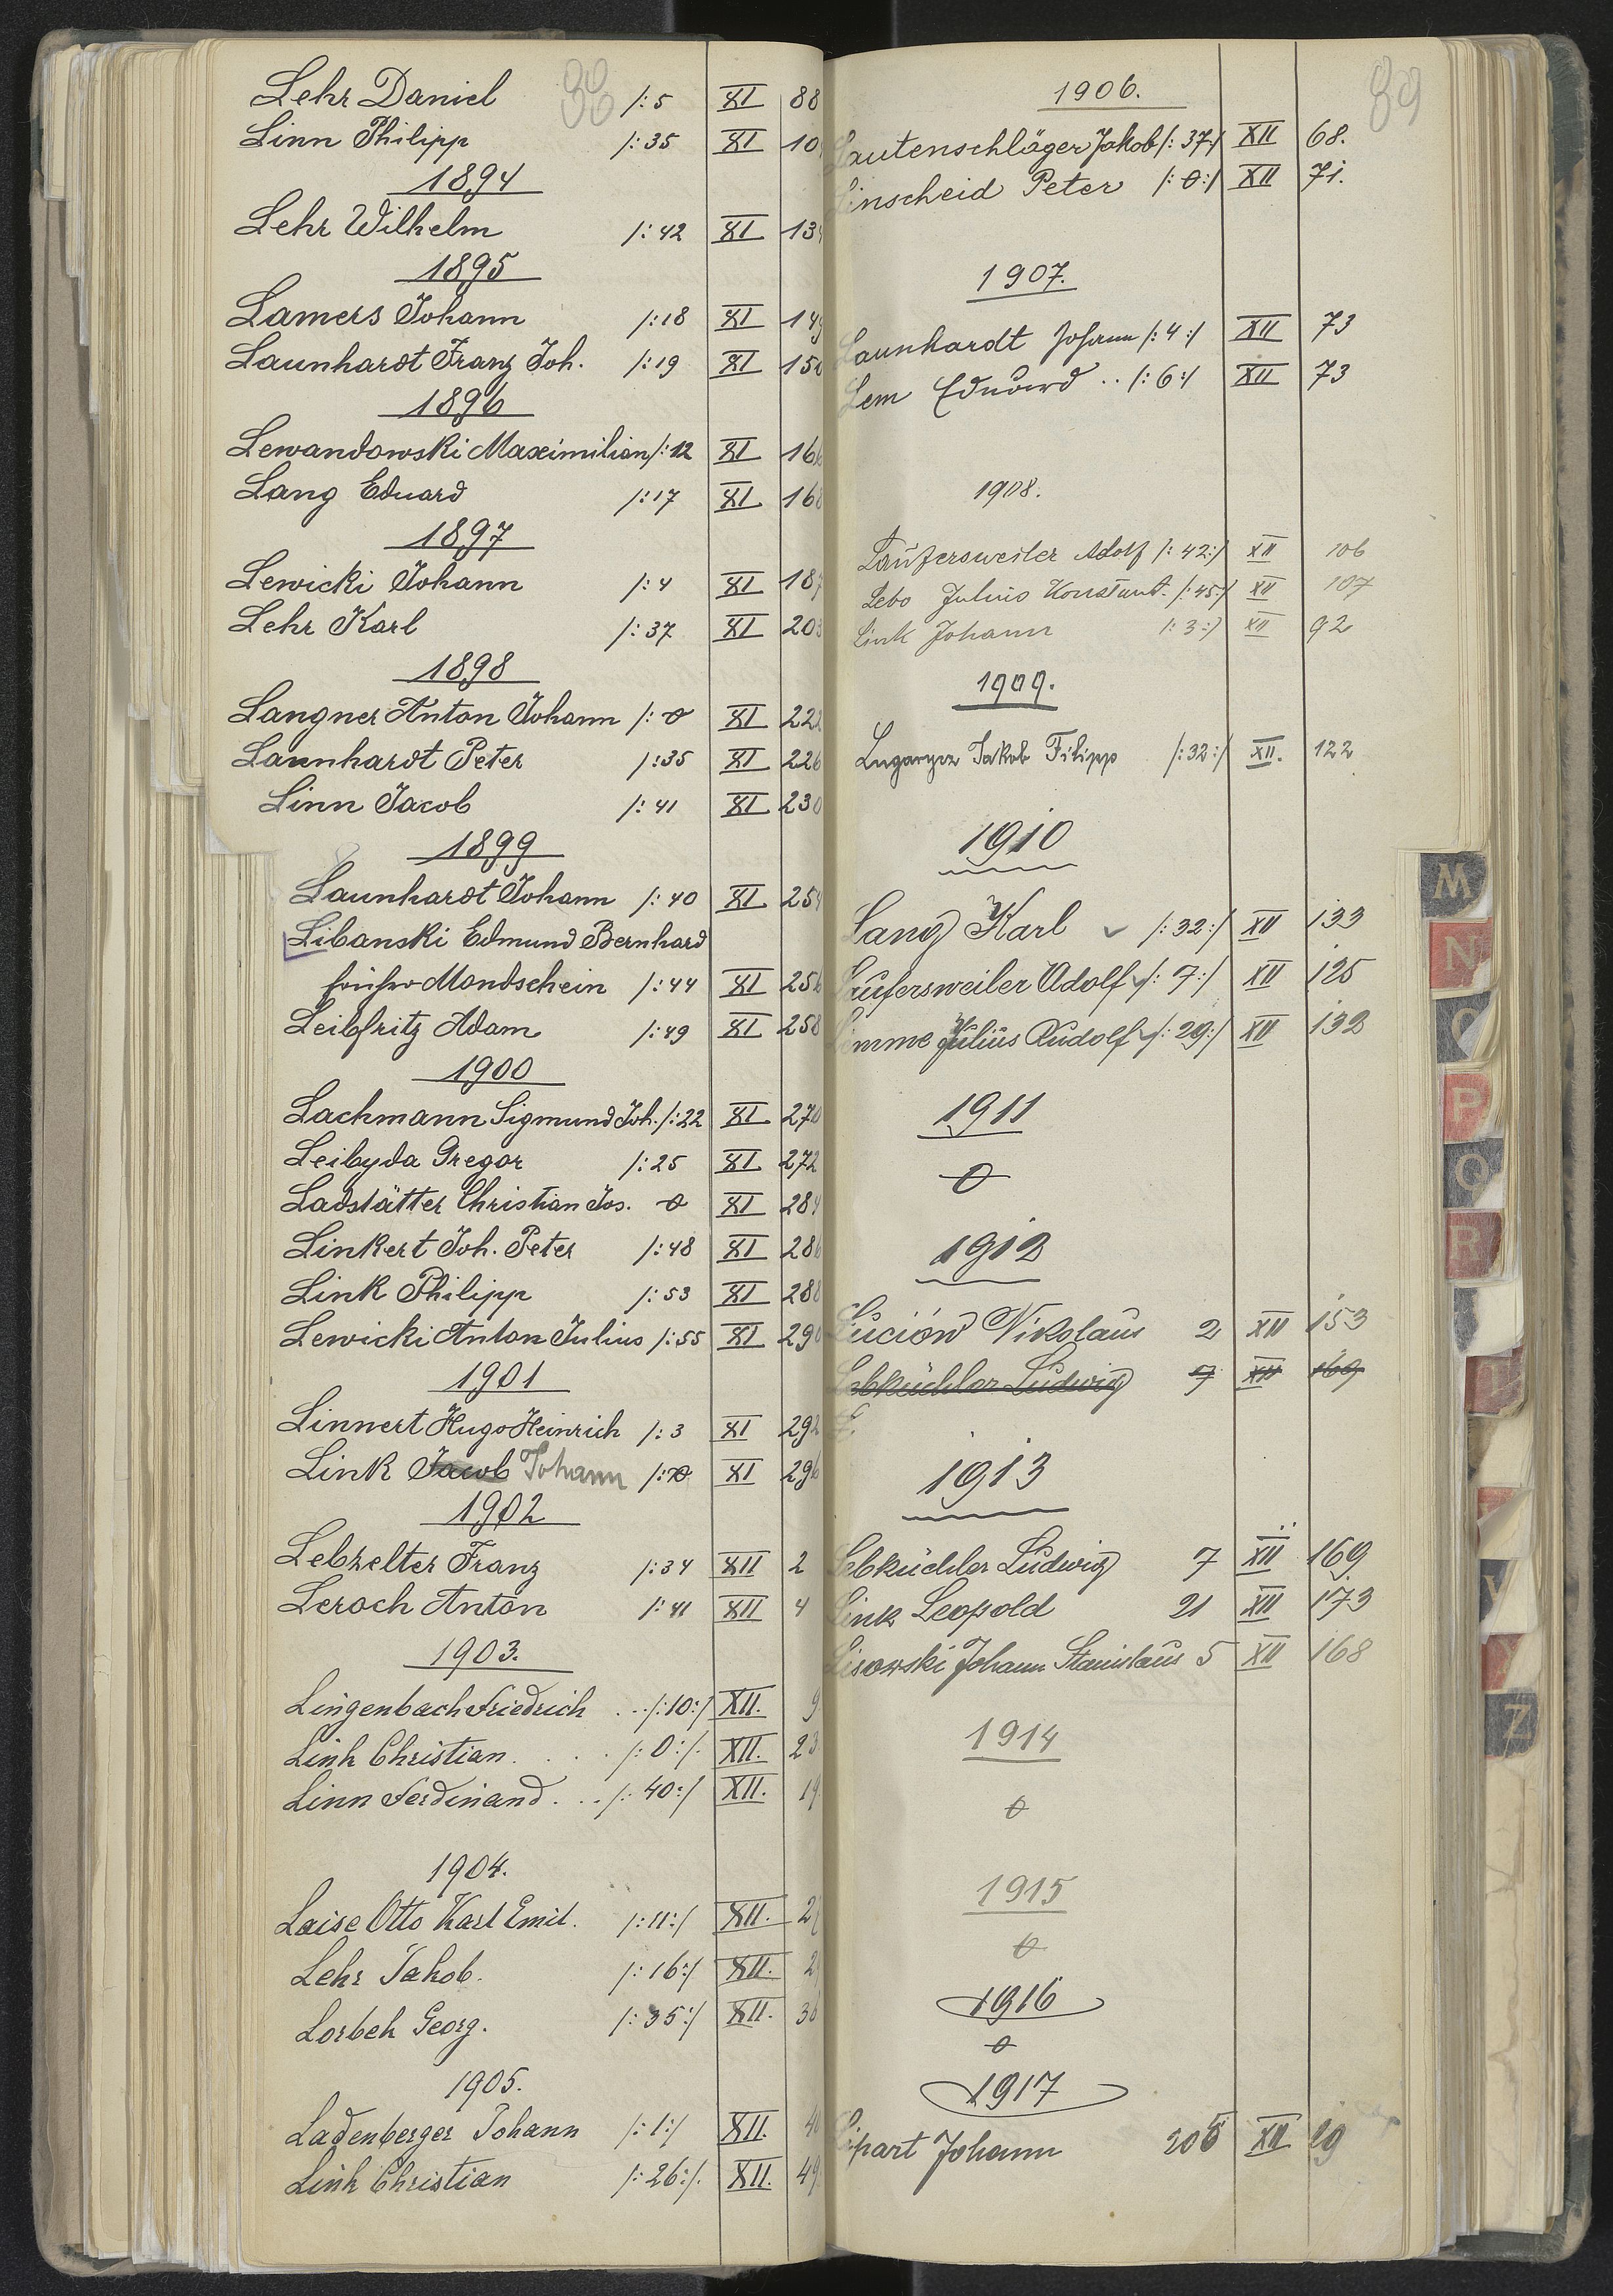 88
Lehr Daniel /: 5 XI 88
Linn Philipp /: 35 XI 10
1894
Lehr Wilhelm /: 42 XI 13
1895
Lamers Johann /: 18 XI 149
Launhardt Franz Joh. /: 19 XI 150
1896
Lewandowski Maximilian /: 12 XI 166
Lang Eduard /: 17 XI 168
1897
Lewicki Johann /: 4 XI 187
Lehr Karl /: 37 XI 203
1898
Langner Anton Johann /: 0 XI 222
Launhardt Peter /: 35 XI 226
Linn Jacob /: 41 XI 230
1899
Launhardt Johann /: 40 XI 254
Libanski Edmund Bernhard
früher Mondschein /: 44 XI 256
Leibfritz Adam /: 49 XI 258
1900
Lachmann Sigmund Joh. /: 22 XI 270
Leibyda Gregor /: 25 XI 272
Ladstätter Christian Jos. 0 XI 284
Linkert Joh. Peter /: 48 XI 286
Link Philipp /: 53 XI 288
Lewicki Anton Julius /: 55 XI 290
1901
Linnert Hugo Heinrich /: 3 XI 292
Link Jacob Johann /: 0 XI 296
1902
Lebzelter Franz /: 34 XII 2
Leroch Anton /: 41 XII 4
1903.
Lingenbach Friedrich . . /: 10 :/ XII. 9
Link Christian . . . . /: 0 :/. XII. 23
Linn Ferdinand . . . /: 40 :/ XII. 19
1904.
Laise Otto Karl Emil. /: 11 :/ XII. 2
Lehr Jakob. /: 16 :/ XII. 2
Lorbek Georg. /: 35 :/ XII. 36
1905.
Ladenberger Johann /: 1 :/ XII. 4
Link Christian /: 26 :/. XII. 49
89
1906.
Lautenschläger Jakob /: 37 :/ XII 68.
Linscheid Peter /: 0 :/ XII 71.
1907.
Launhardt Johann /: 4 :/ XII 73
Lem Eduard . . /: 6 :/ XII 73
1908.
Laufersweiler Adolf /: 42 :/ XII 106
Lebo Julius Konstant. /: 45 :/ XII 107
Link Johann /: 3 :/ XII 92
1909.
Jakob Filipp /: 32 :/ XII. 122
1910
Lang Karl /: 32 :/ XII 133
Laufersweiler Adolf /: 7 :/ XII 125
Lemme Julius Rudolf /: 29 :/ XII 132
1911
0
1912
Luciów Nikolaus 2 XII 153
Lebküchler Ludwig 7 XII 169
L.
1913
Lebküchler Ludwig 7 XII 169
Link Leopold 21 XII 173
Lisowski Johann Stanislaus 5 XII 168
1914
0
1915
0
1916
0
1917
Lipart Johann 205 XII 29
M
N
O
P
Q
R
U
V
Z